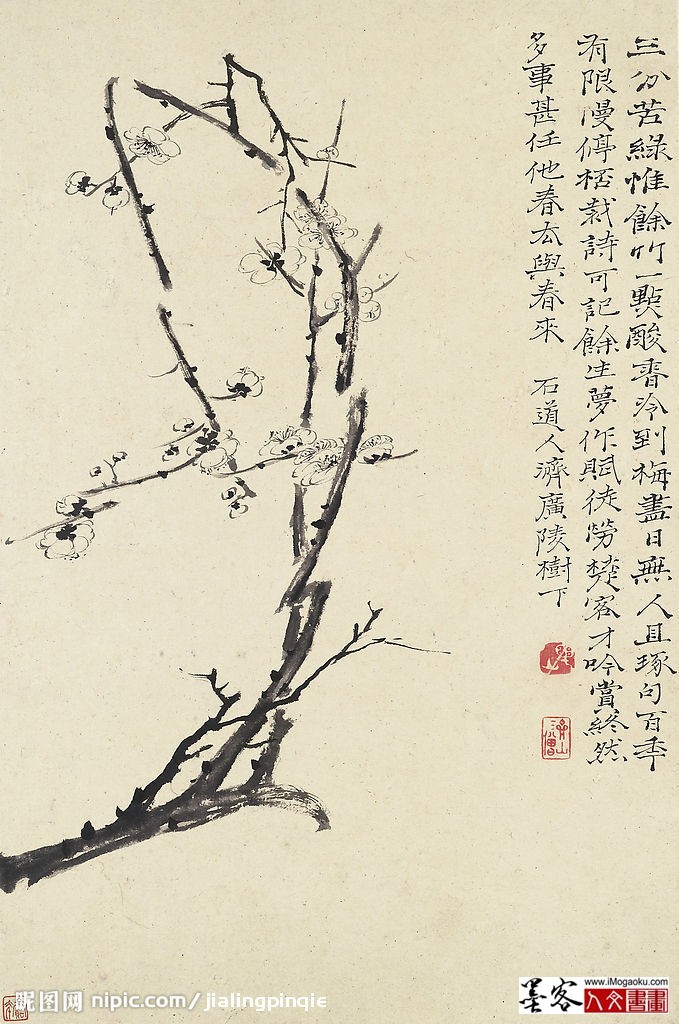 三分苦綠惟餘竹一點酸香冷到梅盡日無人且琢句百秊
有限慢停桮裁詩可記餘生夢作賦徒勞楚客才吟賞終然
多事甚任他春去與春來 石道人濟廣陵樹下
昵图网 nipic.com/jialingpinqie
墨客 www.iMogaoku.com
人文書畫